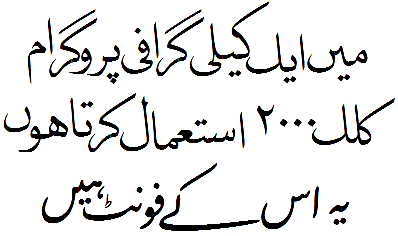 میں ایک کیلی گرافی پروگرام
کلک ۲۰۰۰ استعمال کرتا ہوں
یہ اس کے فونٹ ہیں